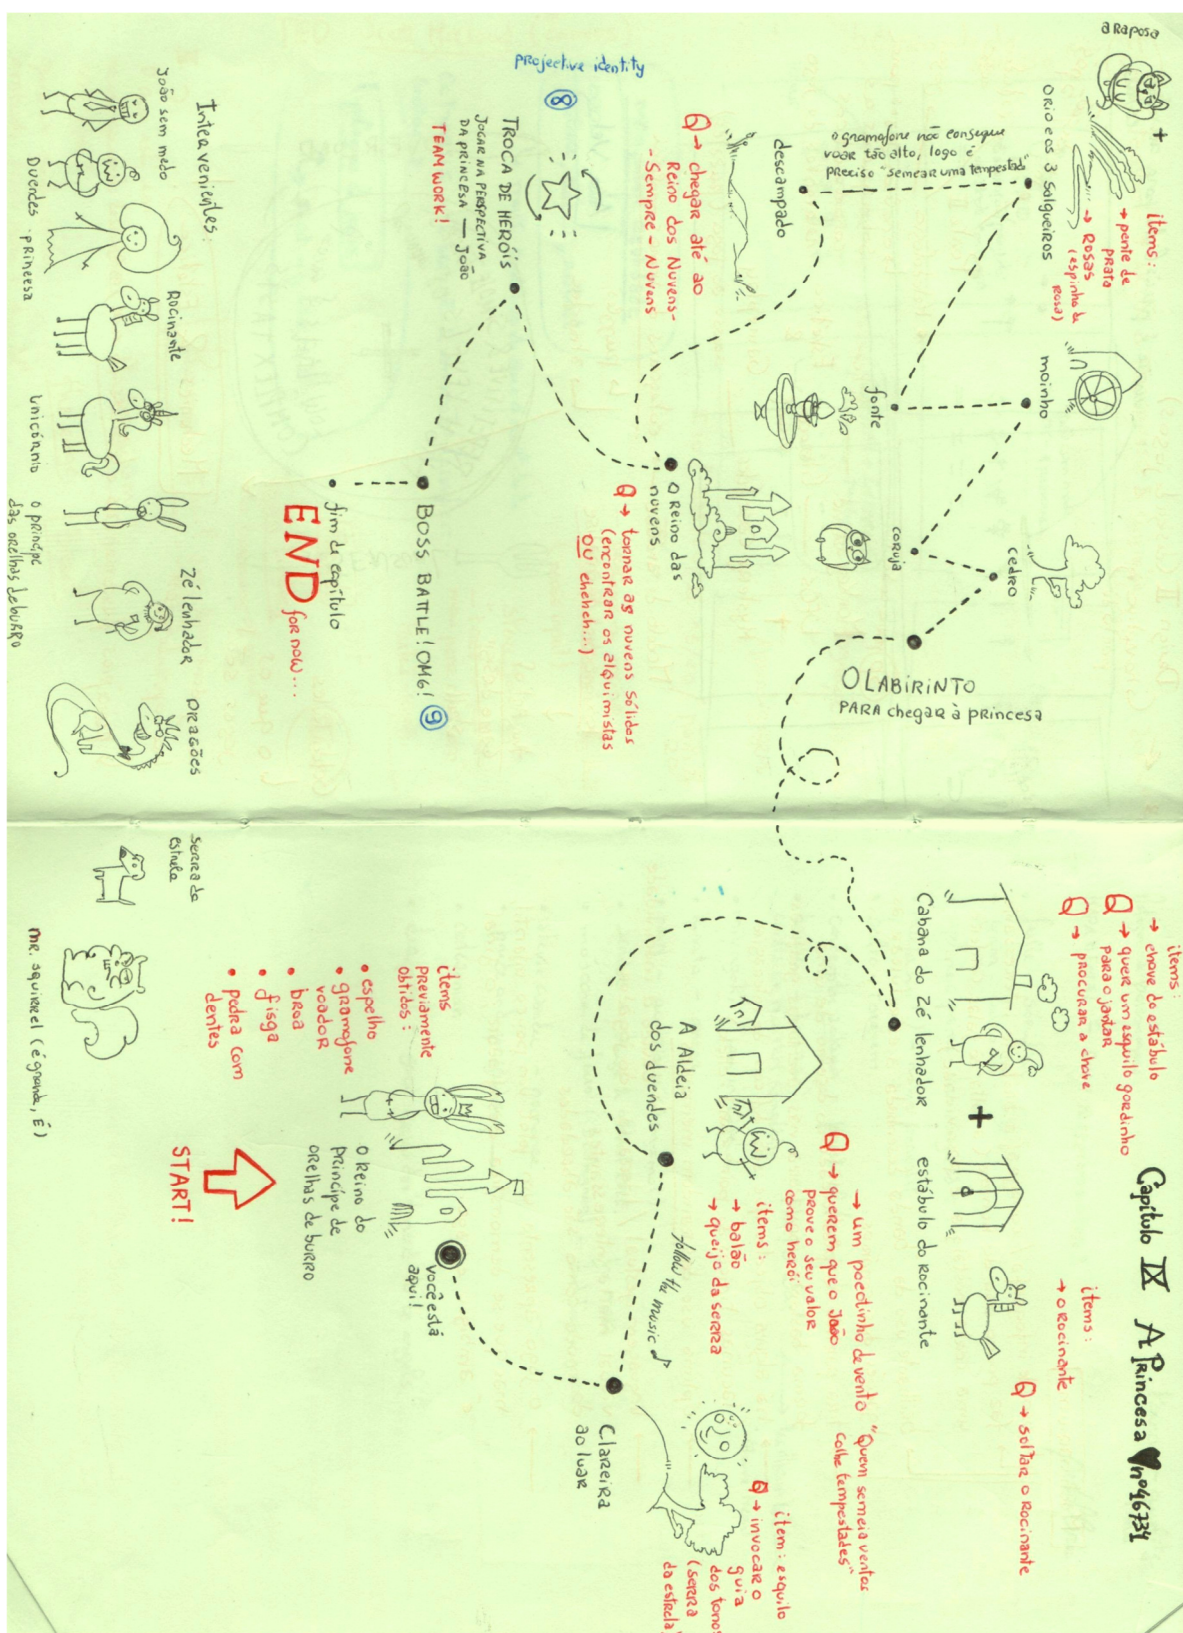 Capítulo IX A Princesa nº46734
items:
→ chave do estábulo
Q → quer um esquilo gordinho
para o jantar
Q → procurar a chave
Cabana do Zé lenhador
+
estábulo do Rocinante
items:
→ o Rocinante
Q → soltar o Rocinante
→ um pocotinho de vento
"Quem semeia ventos
colhe tempestades"
Q → querem que o João
prove o seu valor
como herói
items:
→ balão
→ queijo da serra
A Aldeia
dos duendes
follow the music
item: esquilo
Q → invocar o
guia
dos tonos
(serra
da estrela)
Clareira
ao luar
você está
aqui!
O Reino do
príncipe de
orelhas de burro
START!
items
previamente
obtidos:
• espelho
• gramofone
voador
• broa
• fisga
• pedra com
dentes
O LABIRINTO
PARA chegar à princesa
cedro
coruja
moinho
fonte
a Raposa
+
O rio e os 3 Salgueiros
items:
→ pente de
prata
→ Rosas
(espinho de
rosa)
o gramofone não consegue
voar tão alto, logo é
preciso "semear uma tempestad"
descampado
Q → chegar até ao
Reino dos Nuvens-
-Sempre-Nuvens
O Reino das
nuvens
Q → tornar as nuvens sólidas
(encontrar os alquimistas
OU eheheh...)
projective identity
8
TROCA DE HERÓIS
JOGAR NA PERSPECTIVA
DA PRINCESA — JOÃO
TEAM WORK!
BOSS BATTLE! OMG! 9
fim de capítulo
END for now...
Intervenientes:
João sem medo
Duendes
princesa
Rocinante
Unicórnio
o príncipe
das orelhas de burro
Zé lenhador
Dragões
serra da
estrela
mr. squirrel (é grande, É)